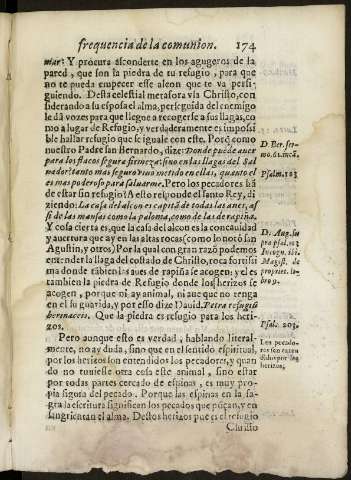 frequencia de la comunion. 174
miar? Y procura asconderte en los agugeros de la
pared, que son la piedra de tu refugio, para que
no te pueda empecer esse alcon que te va persi-
guiendo. Desta celestial metafora vſa Christo, con
siderando a su esposa el alma, perseguida del enemigo
le dà vozes para que llegue a recogerse a sus llagas, co
mo a lugar de Refugio, y verdaderamente es imposi
ble hallar refugio que se iguale con este. Porque como
nuestro Padre san Bernardo, dize: Donde puede auer
para los flacos segura firmeza: sino en las llagas del Sal
uador: tanto mas seguro viuo metido en ellas, quanto el
es mas poderoso para saluarme. Pero los pecadores hã
de estar sin refugio? A esto responde el santo Rey, di
ziendo: La casa del alcon es capitã de todas las aues, as
si de las mansas como la paloma, como de las de rapiña.
Y cosa cierta es, que la casa del alcon es la concauidad
y auertura que ay en las altas rocas (como lo notò san
Agustin, y otros) Por la qual con gran razõ podemos
entender la llaga del costado de Christo, roca fortissi
ma donde tãbien las aues de rapiña se acogen: y el es
tambien la piedra de Refugio donde los herizos se
acogen, porque ni ay animal, ni aue que no tenga
en el su guarida, y por esso dize Dauid. Petra refugiũ
herinaceis. Que la piedra es refugio para los heri-
zos.
Pero aunque esto es verdad, hablando literal-
mente, no ay duda, sino que en el sentido espiritual,
por los herizos son entendidos los pecadores, y quan
do no tuuiesse otra cosa este animal, sino estar
por todas partes cercado de espinas, es muy pro-
pia figura del pecado. Porque las espinas en la sa-
gra la escritura significan los pecados que pũçan, y en
sangrientan el alma. Destos herizos pues es el refugio
Christo
D. Ber. ser-
mo. 61. in cã.
Psalm. 103
D. Aug. su
pra psal. 103
Magist. de
Psal. 103.
Los pecado-
res son enten
didos por los
herizos.